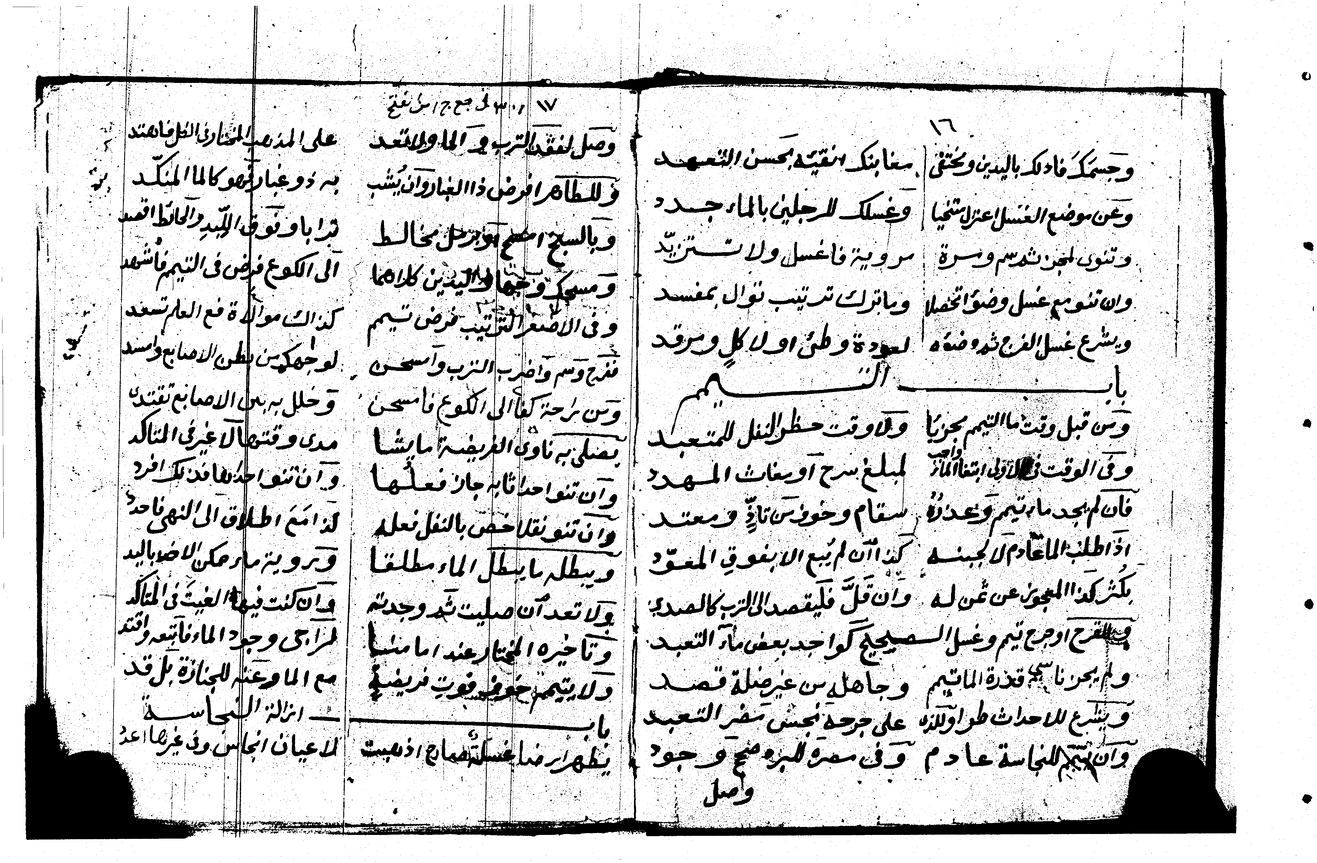 ١٦
وجسمك فادلك باليدين وتختفى مغابنك انقيه بحسن التعهد
وعن موضع الغسل اعتزل متنحيا وغسلك للرجلين بالماء جدد
وتنوى لمجز ثم سم ومرة مروية فاغسل ولا تستزيد
وان تنو مع غسل وضوًا تحصلا وما ترك ترتيب نوال بمفسد
ويشرع غسل الفرج ثم وضوه لعودة وطئ او لاكل ومرقد
باب التيمم
ومن قبل وقت ما التيمم مجزيا ولا وقت حظر النفل للمتعبد
وفى الوقت فى الاولى ابتغا الماء واجب لمبلغ سرح او مغاث المهدد
فان لم يجد ماء تيمم وعذره سقام وخوف من تاذٍّ ومعتد
اذا طلب الما عادم لا لجبنه كذا ان لم يبع الا بفوق المعوّد
بكثر كذا المعجوز عن ثمن له وان قلّ فليقصد الى الترب كالصدى
وبالقرح او جرح تيمم وغسل الصحيح كواجد بعض ماء التعبد
ولم يجز ناسى قدرة الما تيمم وجاهله من غير ضلة قصد
ويشرع للاحداث طرا على جرحه نجس مضر التعبد
وان تيمم للنجاسة عادم وفى مصره للبرد صحح وجود
وصل
١٧
وصل لفقد الترب والما ولا تعد على المذهب المختار فى الكل فاهتد
وللطاهر افرض ذا الغبار وان يُشب به ذو غبار فهو كالما المنكّد
وبالسبخ امنع او برمل مخالط ترابا وفوق اللبد والحائط اقصد
ومسحك وجها واليدين كلاهما الى الكوع فرض فى التيمم فاشهد
وفى الاصغر الترتيب فرض تيمم كذاك موالاة فع العلم تسعد
ففرج وسم واضرب الترب وامسحن لوجهك من بطن الاصابع وامسد
ومن راحة كفا الى الكوع فامسحن وخلل به بين الاصابع تقتدى
يصلى به ناوى الفريضة ما يشا مدى وقتها لا غير فى المتاكد
وان تنو احداثا به جاز فعلها وان تنو احداها فذلك افرد
وان تنو نفلا خص بالنفل فعله لذا مع اطلاق الى النهى فاحد
ويبطله ما يبطل الماء مطلقا وبروية ماء حكن الاخذ باليد
ولا تعد ان صليت ثم وجدته وان كنت فيها الغيت فى المتاكد
وتاخيره المختار عند امامنا لمن ارتجى وجود الماء فاتبعه واقتد
ولا يتيمم خوف فوت فريضة مع الما وعنه للجنازة بل قد
باب ازالة النجاسة
يطهر ارضا غسلة صاح اذهبت لاعيان انجاس وفى غيرها اعدد